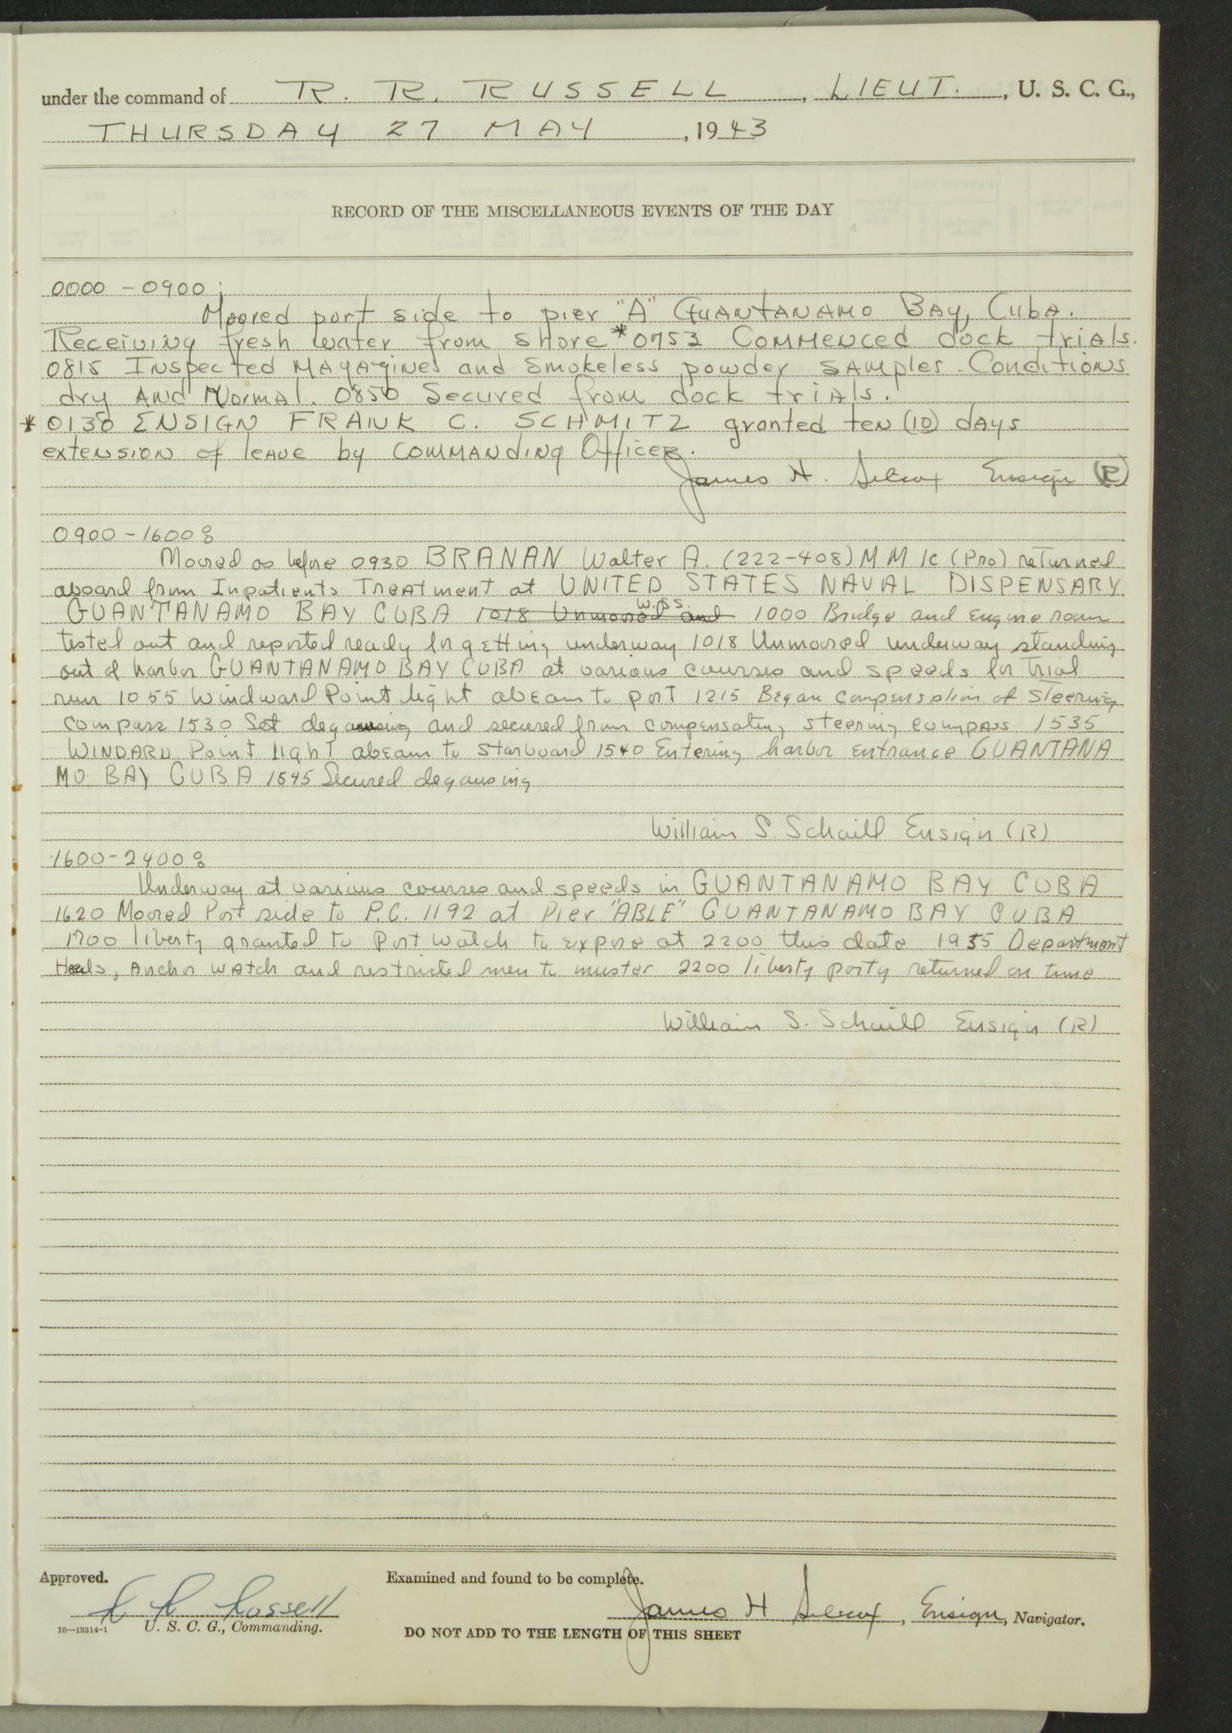 under the command of R. R. RUSSELL, LIEUT., U. S. C. G.,
THURSDAY 27 MAY, 1943
RECORD OF THE MISCELLANEOUS EVENTS OF THE DAY
0000 - 0900:
Moored port side to pier "A" GUANTANAMO BAY, CUBA.
Receiving fresh water from shore *0753 Commenced dock trials.
0815 Inspected MAGAZINES and smokeless powder samples. Conditions
dry and Normal. 0850 Secured from dock trials.
*0130 ENSIGN FRANK C. SCHMITZ granted ten (10) days
extension of leave by Commanding Officer.
James H. Ensign (R)
0900-1600:
Moored as before 0930 BRANAN Walter A. (222-408) MM 1c (Pro) returned
aboard from Inpatients Treatment at UNITED STATES NAVAL DISPENSARY
W.S.S.
GUANTANAMO BAY CUBA 1018 Unmoored and 1000 Bridge and Engine room
tested out and reported ready for getting underway 1018 Unmoored underway standing
out of harbor GUANTANAMO BAY CUBA at various courses and speeds for trial
run 1055 Windward Point light abeam to port 1215 Began compensation of steering
compass 1530 Set degausing and secured from compensating steering compass 1535
WINDARD Point light abeam to starboard 1540 Entering harbor entrance GUANTANA
MO BAY CUBA 1545 Secured degausing
William S. Schaill Ensign (R)
1600-2400:
Underway at various courses and speeds in GUANTANAMO BAY CUBA
1620 Moored Port side to P.C. 1192 at Pier "ABLE" GUANTANAMO BAY CUBA
1700 liberty granted to Port watch to expire at 2200 this date 1935 Department
Heads, Anchor watch and restricted men to muster 2200 liberty party returned on time
William S. Schaill Ensign (R)
Approved.
Examined and found to be complete.
R R Russell
James H, Ensign, Navigator.
16—13314-1 U. S. C. G., Commanding.
DO NOT ADD TO THE LENGTH OF THIS SHEET